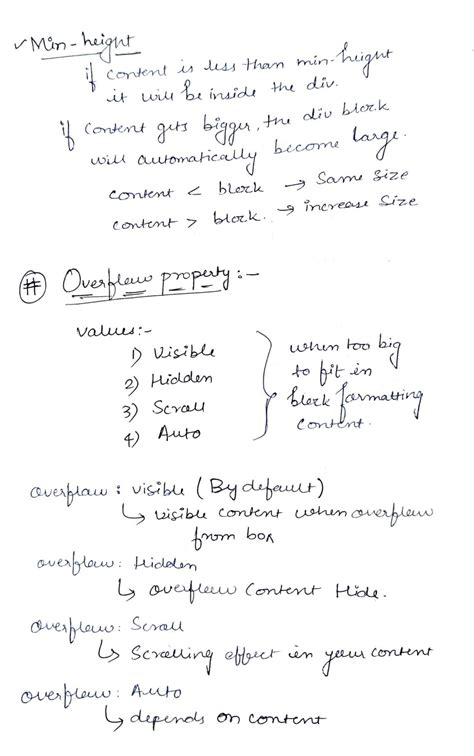 ✓ Min-height
if content is less than min-height
it will be inside the div.
if content gets bigger, the div block
will automatically become large.
content < block → Same size
content > block. → increase size
# Overflow property:-
values:-
1) Visible
2) Hidden
3) Scroll
4) Auto
when too big
to fit in
block formatting
content.
overflow: visible (By default)
↳ visible content when overflow
from box
overflow: Hidden
↳ overflow content Hide.
overflow: Scroll
↳ Scrolling effect in your content
overflow: Auto
↳ depends on content